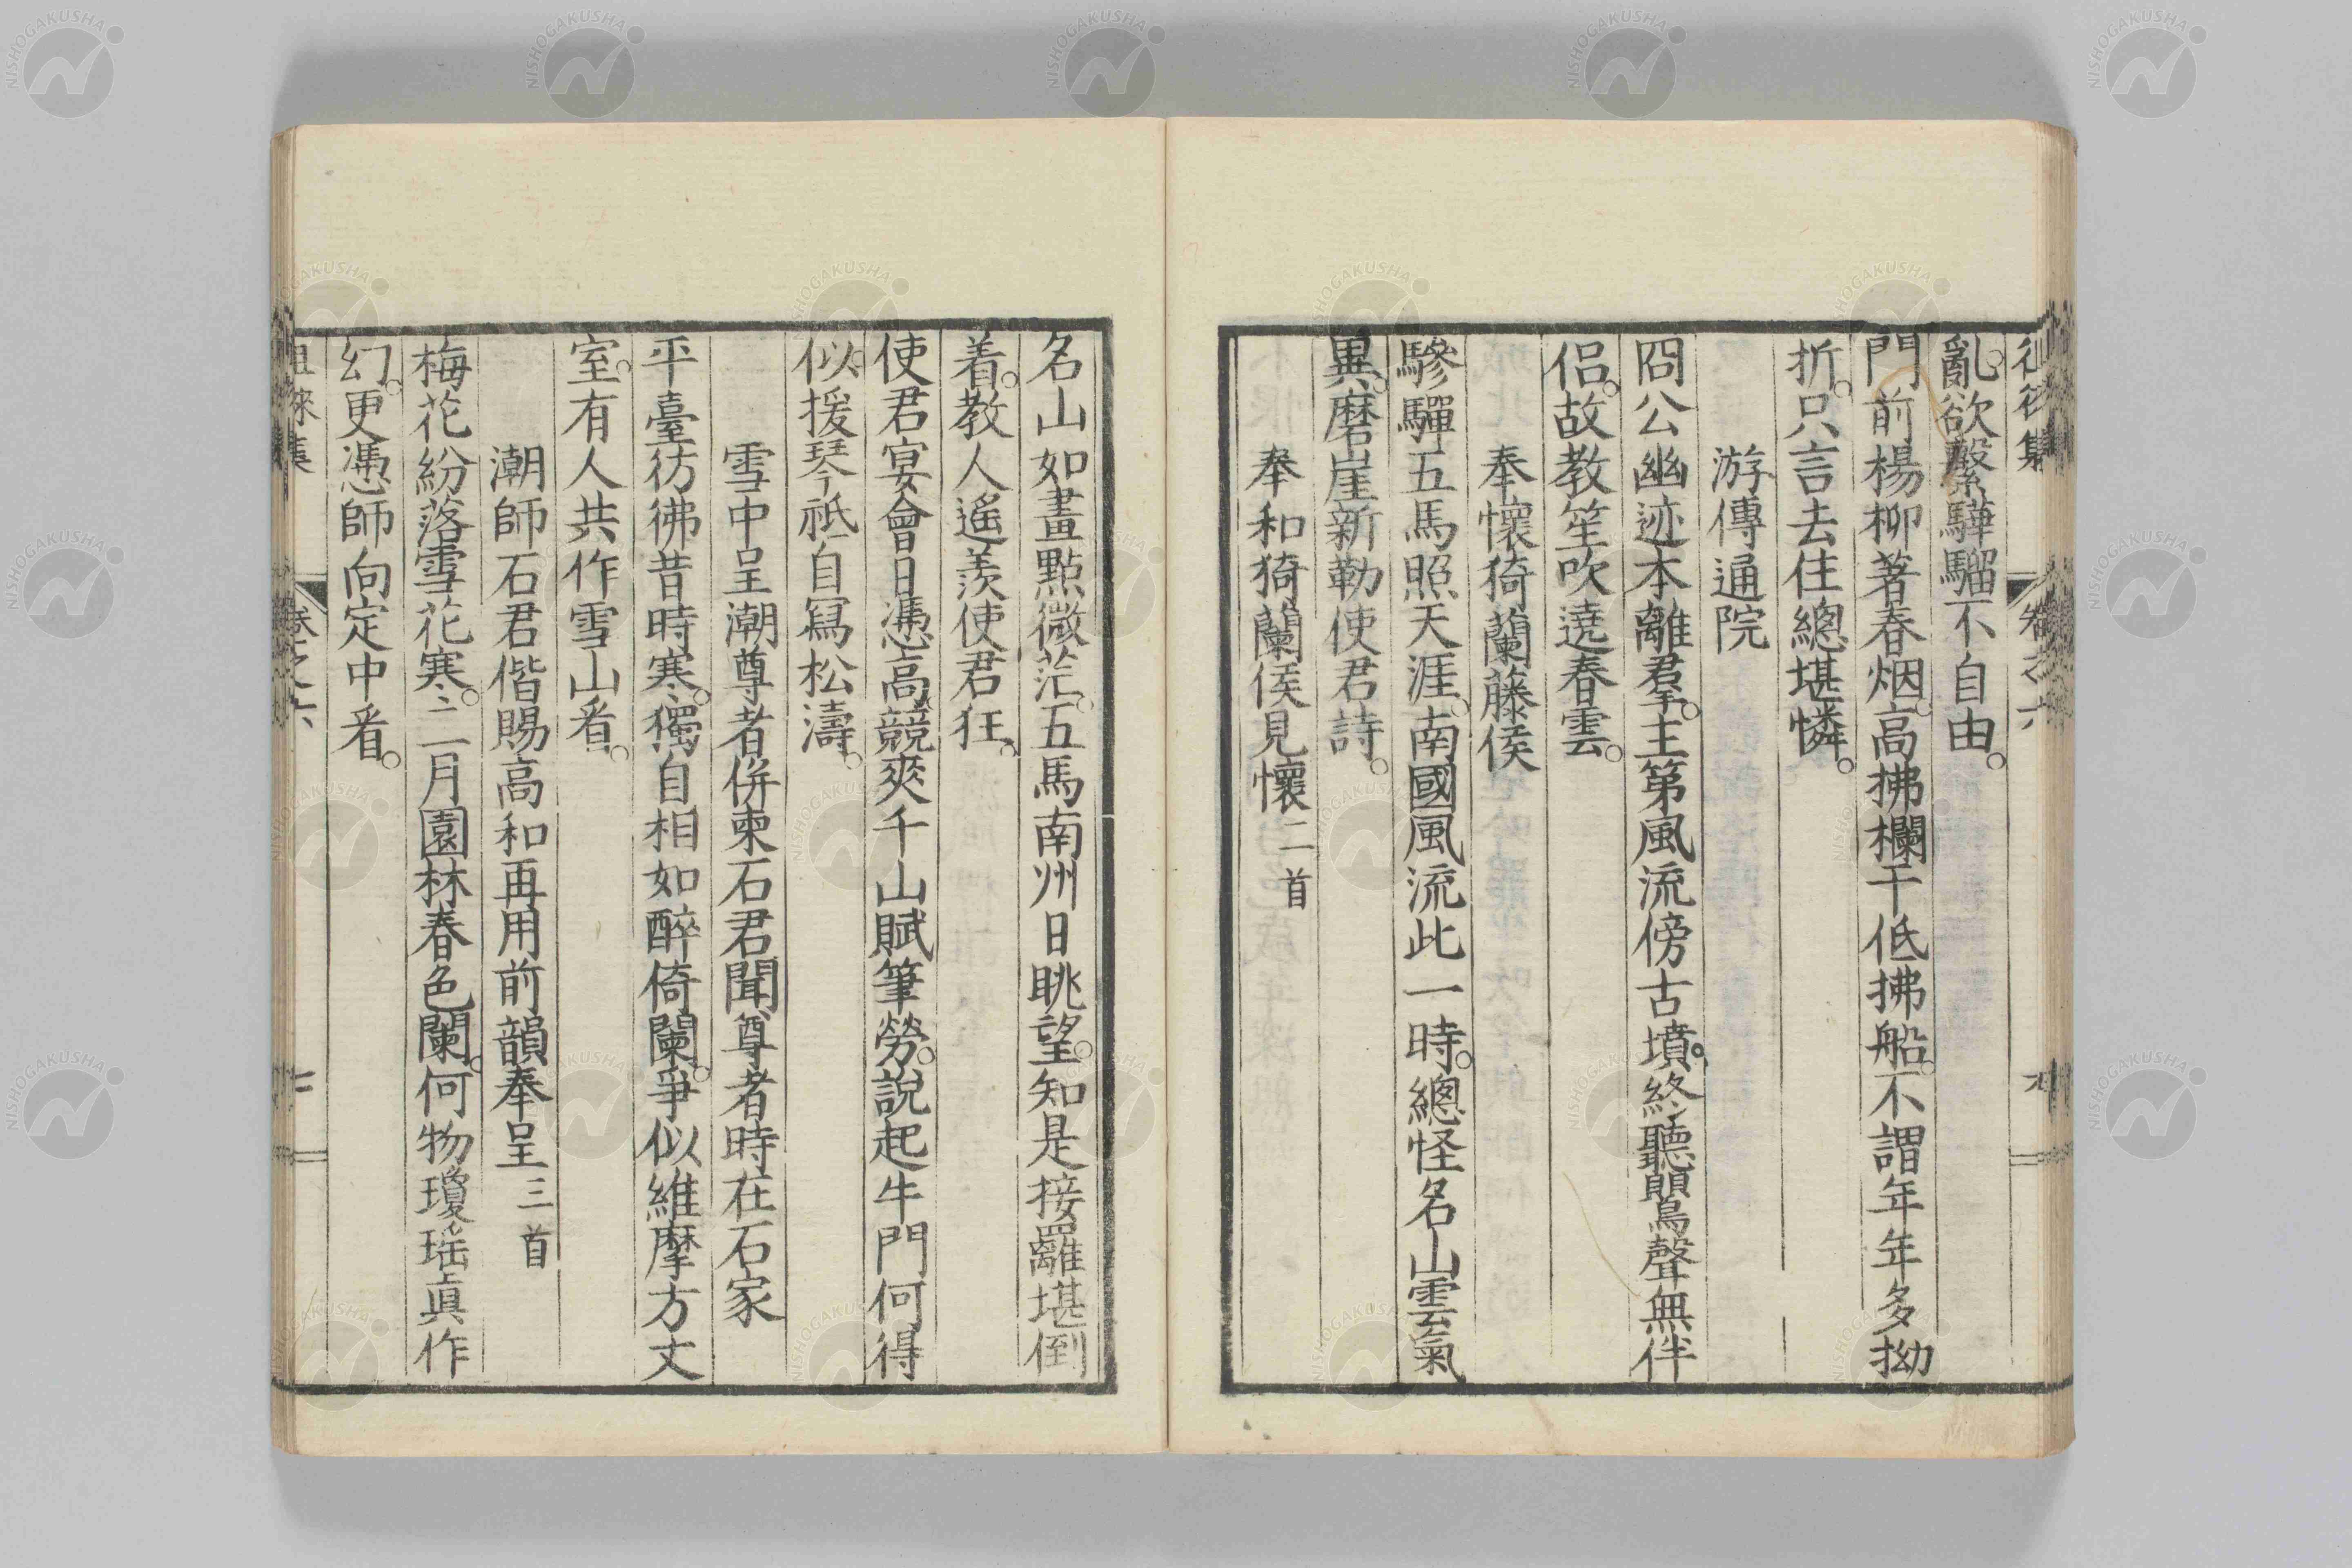 亂。欲繫驊騮不自由。
門前楊柳著春烟。高拂欄干低拂船。不謂年年多拗
折。只言去住總堪憐。
游傳通院
冏公幽迹本離羣。主第風流傍古墳。終聽鸎聲無伴
侶。故教笙吹遶春雲。
奉懷猗蘭藤侯
驂驔五馬照天涯。南國風流此一時。總怪名山雲氣
異。磨崖新勒使君詩。
奉和猗蘭侯見懷二首
名山如畫點微茫。五馬南州日眺望。知是接䍦堪倒
着。教人遙羨使君狂。
使君宴會日憑高。競爽千山賦筆勞。說起牛門何得
似。援琴祇自寫松濤。
雪中呈潮尊者併柬石君聞尊者時在石家
平臺彷彿昔時寒。獨自相如醉倚闌。爭似維摩方丈
室。有人共作雪山看。
潮師石君偕賜高和再用前韻奉呈三首
梅花紛落雪花寒。二月園林春色闌。何物瓊瑤眞作
幻。更憑師向定中看。
卷之六
NISHOGAKUSHA